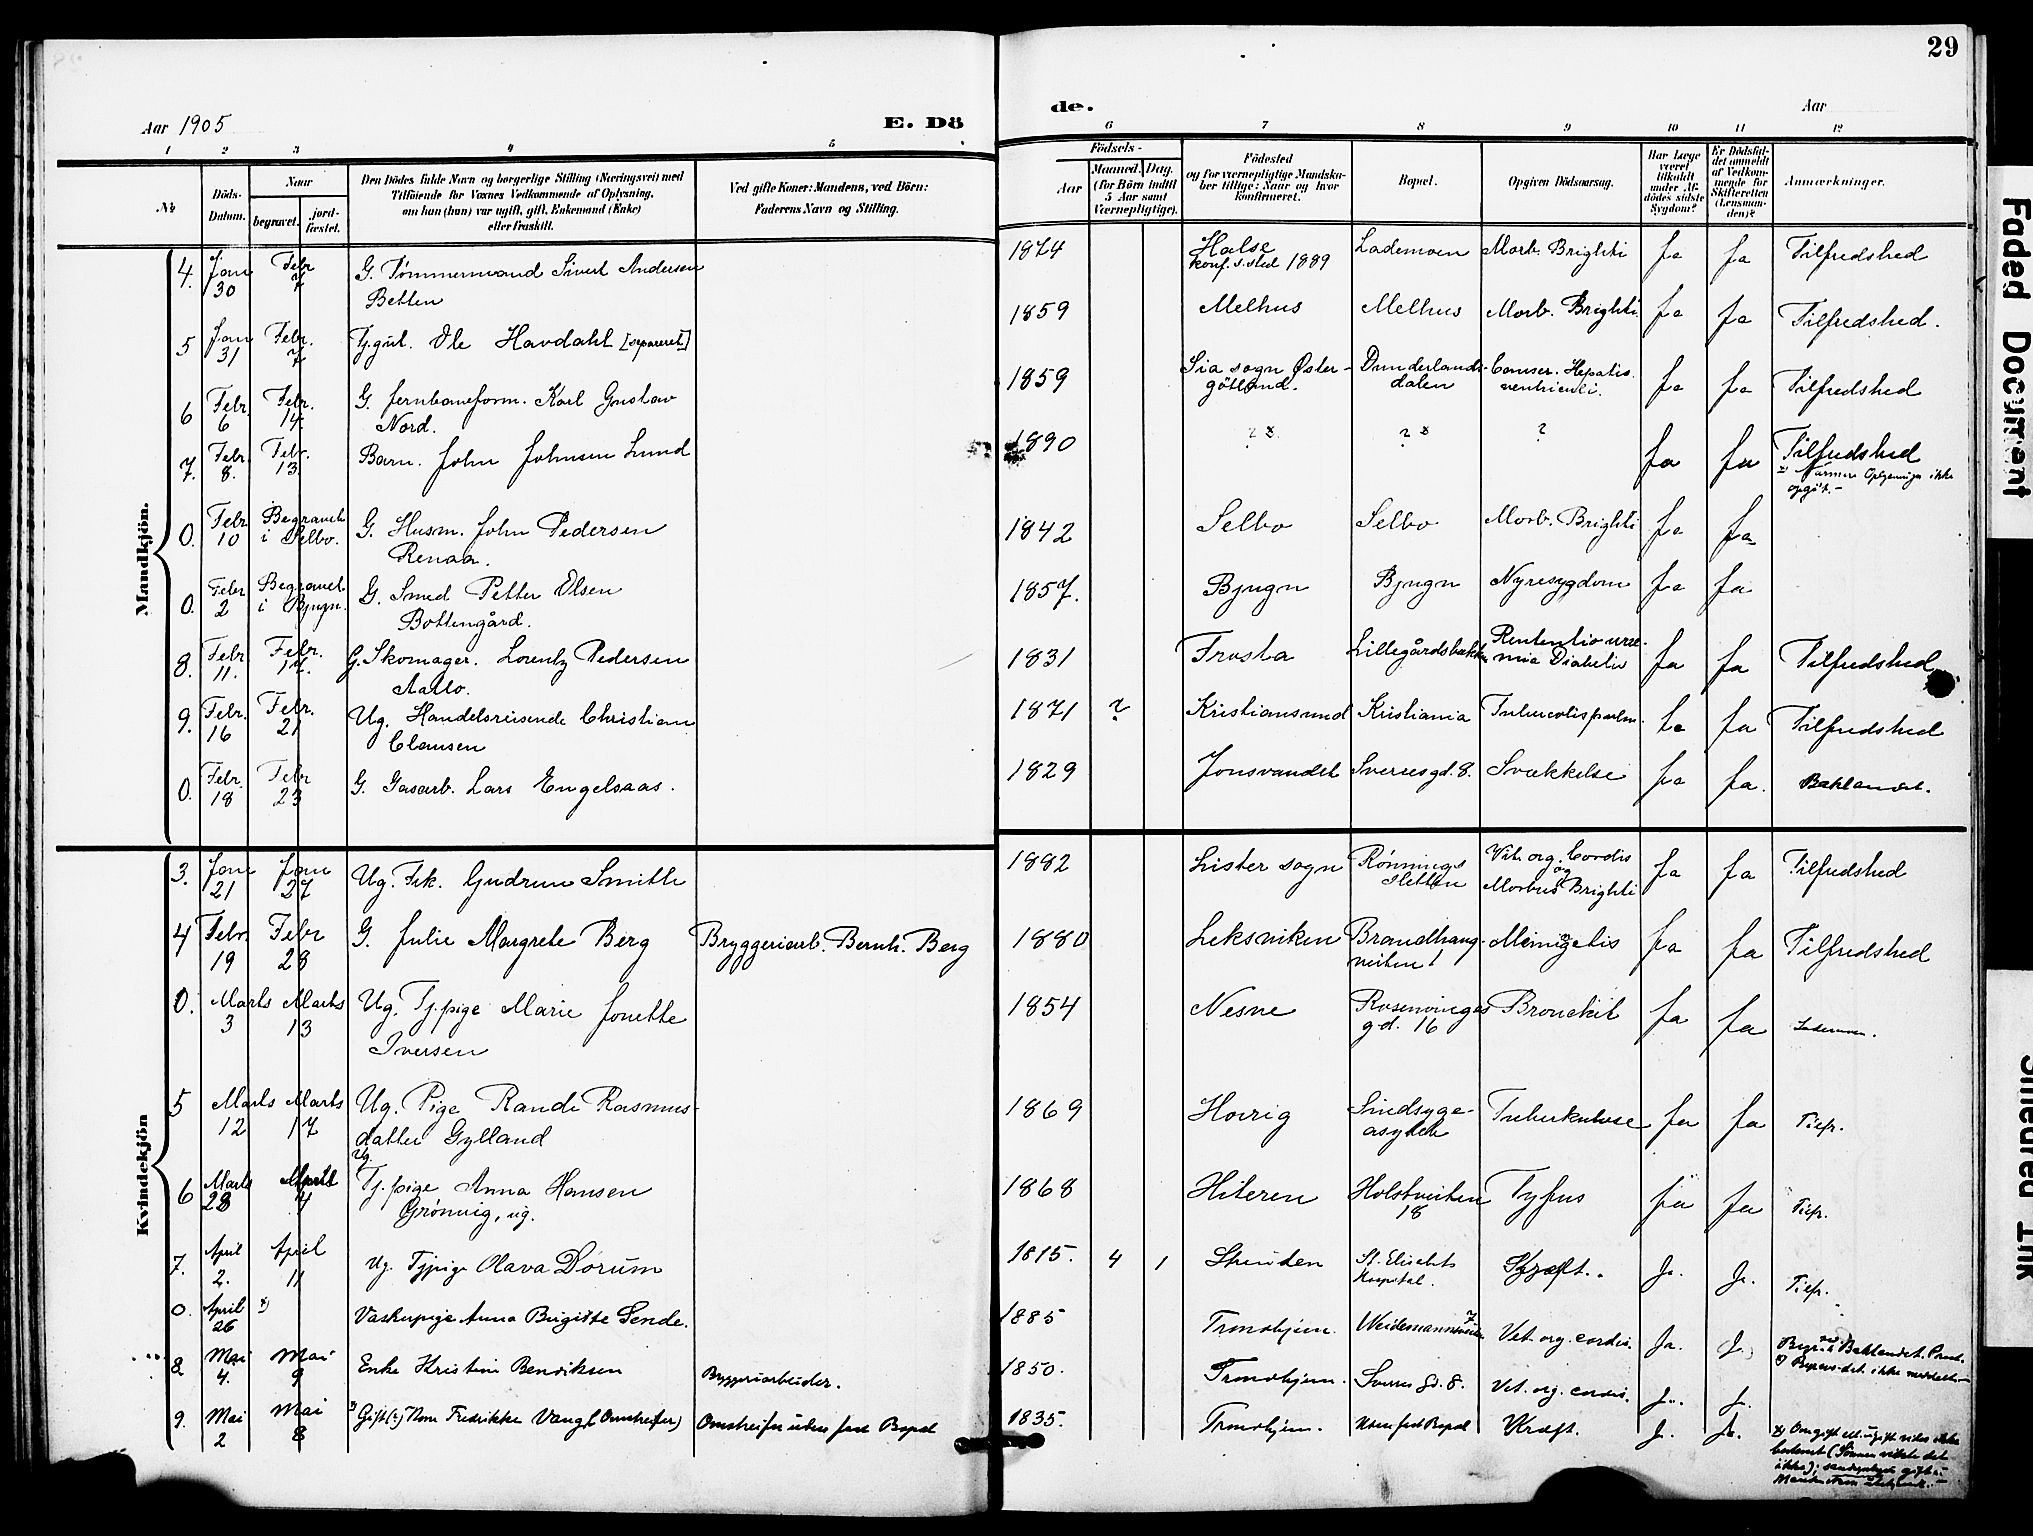 29
Aar 1905
E. Dö
de.
Aar
1 2 3 4 5
6 7 8 9 10 11 12
№
Döds-
Datum.
Naar
begravet. jord-
fæstet.
Den Dödes fulde Navn og borgerlige Stilling (Næringsvei) med
Tilföiende for Voxnes Vedkommende af Oplysning,
om han (hun) var ugift, gift, Enkemand (Enke)
eller fraskilt.
Ved gifte Koner: Mandens, ved Börn:
Faderens Navn og Stilling.
Födsels-
Aar
Maaned. Dag.
(for Börn indtil
5 Aar samt
Værnepligtige).
Födested
og for værnepligtige Mandska-
ber tillige: Naar og hvor
konfirmeret.
Bopæl.
Opgiven Dödsaarsag.
Har Læge
været
tilkaldt
under Af-
dödes sidste
Sygdom?
Er Dödsfal-
det anmeldt
af Vedkom-
mende for
Skifteretten
(Lensman-
den)?
Anmærkninger.
Mandkjön.
4. Jan 30 Febr 7 G. Tømmermand Sivert Andersen
Betten
1874 Halse Lademoen Morb. Brighti Ja Ja Tilfredshed
konf. s. sted 1889
5 Jan 31 Febr. 7 Tj.gut. Ole Havdahl [separeret]
1859 Melhus Melhus Morb. Brighti. Ja Ja Tilfredshed.
6 Febr. 6 Febr. 14. G. Jernbaneform. Karl Gustav
Nord.
1859 Sia sogn Øster- Dunderlands- Cancer. Hepatis. Ja Ja Tilfredshed
götland. dalen ventriculi.
7. Febr. 8. Febr. 13 Barn. John Johnsen Lund
1890 ? x ? x ? Ja Ja Tilfredshed
x) Nærmere Oplysninger ikke
opgit.-
0. Febr 10 Begravet G. Husm. John Pedersen
i Selbo. Renaa.
1842 Selbo Selbo Morb. Brighti Ja Ja
0. Febr 2 Begravet G. Smed Petter Olsen
i Bjugn. Bottengård.
1857. Bjugn Bjugn Nyresygdom Ja Ja
8. Febr 11. Febr. 17. G. Skomager. Lorentz Pedersen
1831 Frosta Lillegårdsbakken Rentention uræ- Ja Ja Tilfredshed
mia Diabetis
9. Febr. 16 Febr. 21 Ug. Handelsreisende Christian
Clausen
1871 ? Kristiansund Kristiania Tuberculis pulm. Ja Ja Tilfredshed
0. Febr. 18 Febr 23 G. Gasarb. Lars Engelsaas.
1829 Jonsvandet Sverresgd. 8. Svækkelse Ja Ja. Baklandet.
Kvindekjön
3. Jan 21 Jan 27 Ug. Frk. Gudrun Smith
1882 Lister sogn Rønnings Vit. org. Cordis Ja Ja Tilfredshed
sletten og
Morbus Brighti
4 Febr. 19 Febr 28 G. Julie Margrete Berg Bryggeriarb. Bernh. Berg
1880 Leksviken Brandhaug- Meningetis Ja Ja Tilfredshed
veiten 1
0. Marts 3 Marts 13 Ug. Tj.pige Marie Jonette
Iversen
1854 Nesne Rosenvinges Bronckit Ja Ja Lademoen.
gd. 16
5 Marts 12 Marts 17 Ug. Pige Rande Rasmus-
datter Gylland
1869 Sindsyge- Tuberkulose Ja Ja Tilfr.
asylet
6 Marts 28 April 4 Ug. Tj.pige Anna Hansen
Grönvig, ug.
1868 Hiteren Holstveiten Tyfus Ja Ja Tilfr.
18
7. April 2. April 11 Ug. Tjpige Olava Dorum
1815. 4 1 Strinden St. Elisabets Kræft. Ja. Ja. Tilfr.
Hospital.
0. April 26 x) Vaskepige Anna Birgitte Sende.
1885 Trondhjem. Weidemannsveiten 7 Vit. org. cordis. Ja. J. Begr. v. Baklandet. Præst.
8 Mai 4. Mai 9 Enke Kristine Bendiksen Bryggeriarbeider.
1850. Trondhjem. Sverres gd. 8. Vit. org. cordis. J. J.
9. Mai 2 Mai 8 x) Gift(?) Nora Fredrikke Vang (Omstreifer) Omstreifer uden fast Bopæl
1835. Trondhjem. Uden fast Bopæl Kræft. J. Ja.
x) Om gift ell. ugift vides ikke
bestemt (Sönnen vidste det
ikke); sandsynlig gift:-
Faded Document
Smeared Ink